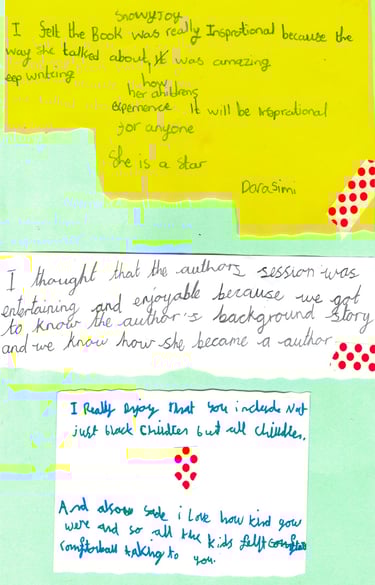 Snowyjoy
I felt the Book was really Insprotional because the
way she talked about, it was amazing
eep writing how
her childrens
experience It will be Insprational
for anyone
She is a star
Darasimi
I thought that the authors session was
entertaining and enjoyable because we got
to know the author's background story
and we know how she became a author.
I Really enjoy that you include Not
just black Children but all children.
And also side i love how kind you
were and so all the kids felt
comfortball talking to you.